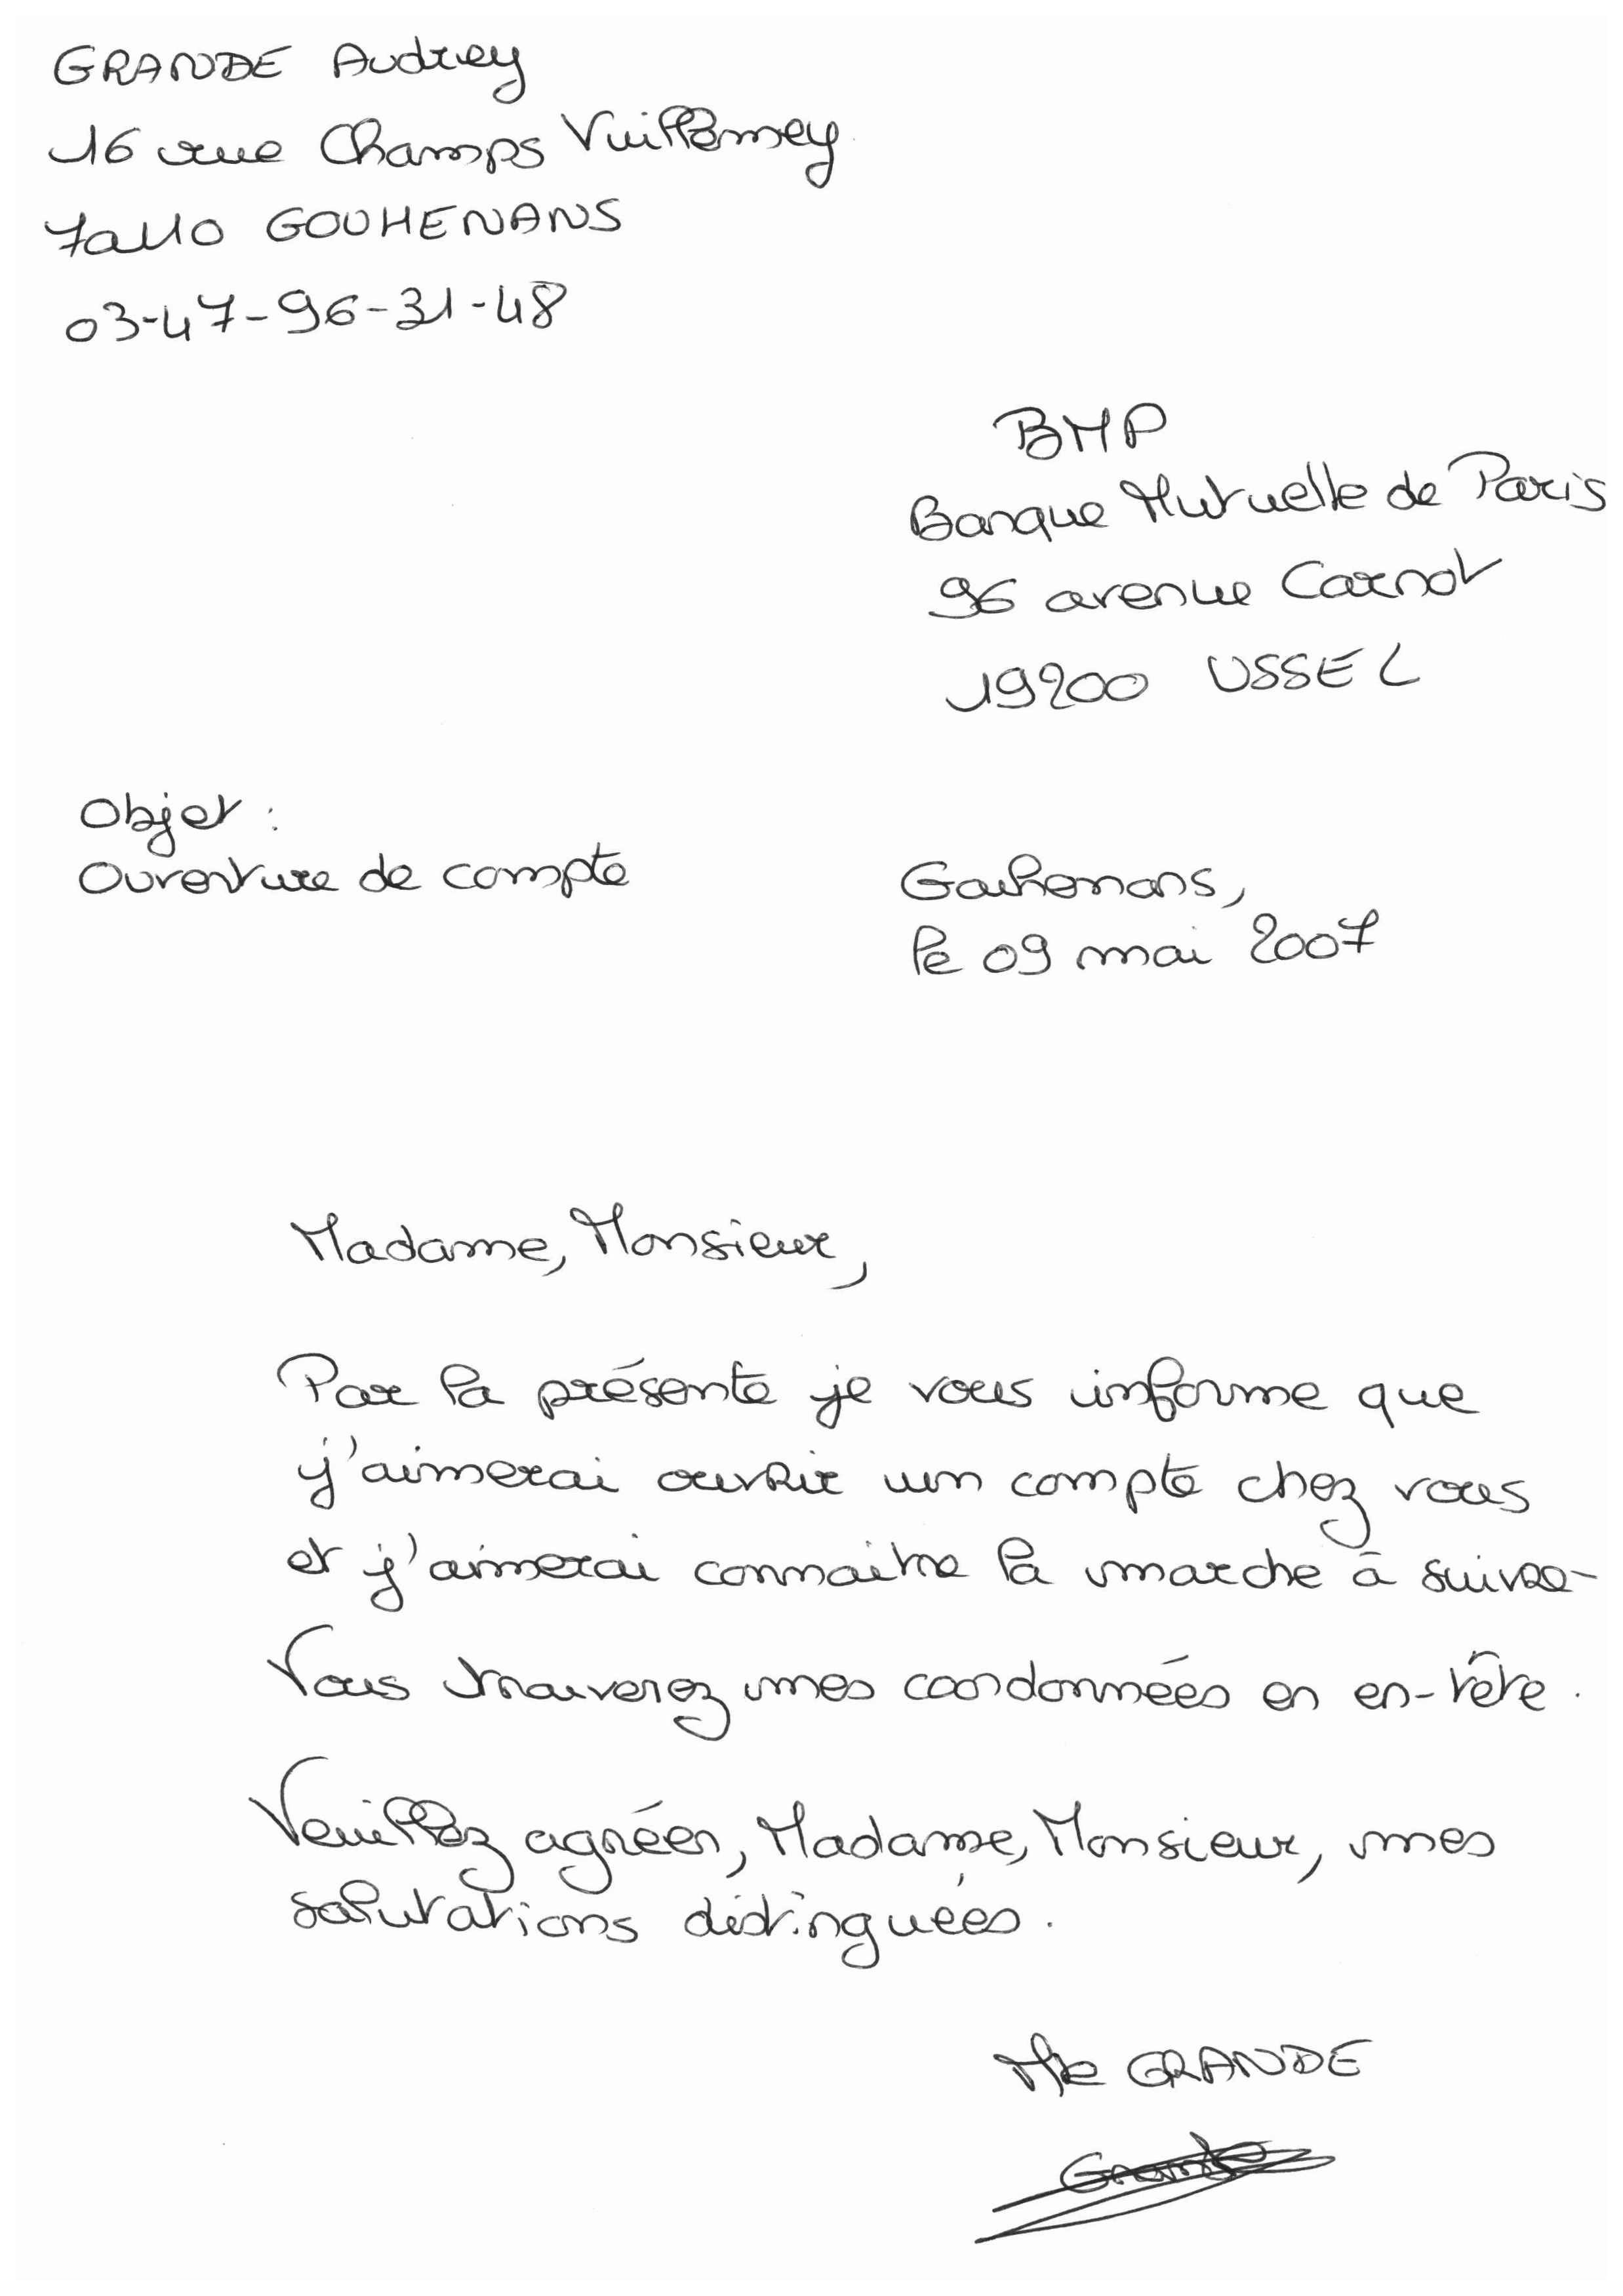 GRANDE Audrey
16 rue Champs Vuillemey
70110 GOUHENANS
03-47-96-31-48
BMP
Banque Mutuelle de Paris
96 avenue Carnot
19200 USSEL
Objet :
Ouverture de compte
Gouhenans,
le 09 mai 2007
Madame, Monsieur,
Par la présente je vous informe que
j'aimerai ouvrir un compte chez vous
et j'aimerai connaitre la marche à suivre.
Vous trouverez mes coordonnées en en-tête.
Veuillez agréer, Madame, Monsieur, mes
salutations distinguées.
Mlle GRANDE
Grande